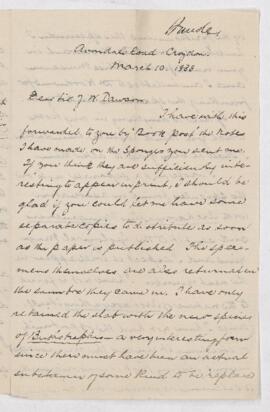 Avondale Road - Croydon.
March 10. 1888
Dear Sir J. W. Dawson.
I have with this
forwarded to you by Book post the Notes
I have made on the Sponges you sent me.
If you think they are sufficiently inte-
resting to appear in print, I should be
glad if you could let me have some
separate copies to distribute as soon
as the paper is published. The speci-
mens themselves are also returned in
the same box they came in. I have only
retained the slab with the new species
of a very interesting form
since there must have been an actual
of some kind to be replace